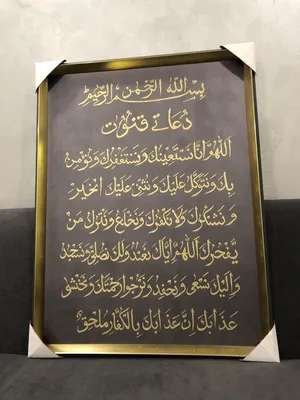 بسم الله الرحمن الرحيم
دعائے قنوت
اللهم انا نستعينك ونستغفرك ونؤمن
بك ونتوكل عليك ونثني عليك الخير
ونشكرك ولا نكفرك ونخلع ونترك من
يفجرك اللهم إياك نعبد ولك نصلي ونسجد
وإليك نسعى ونحفد ونرجوا رحمتك ونخشى
عذابك إن عذابك بالكفار ملحق